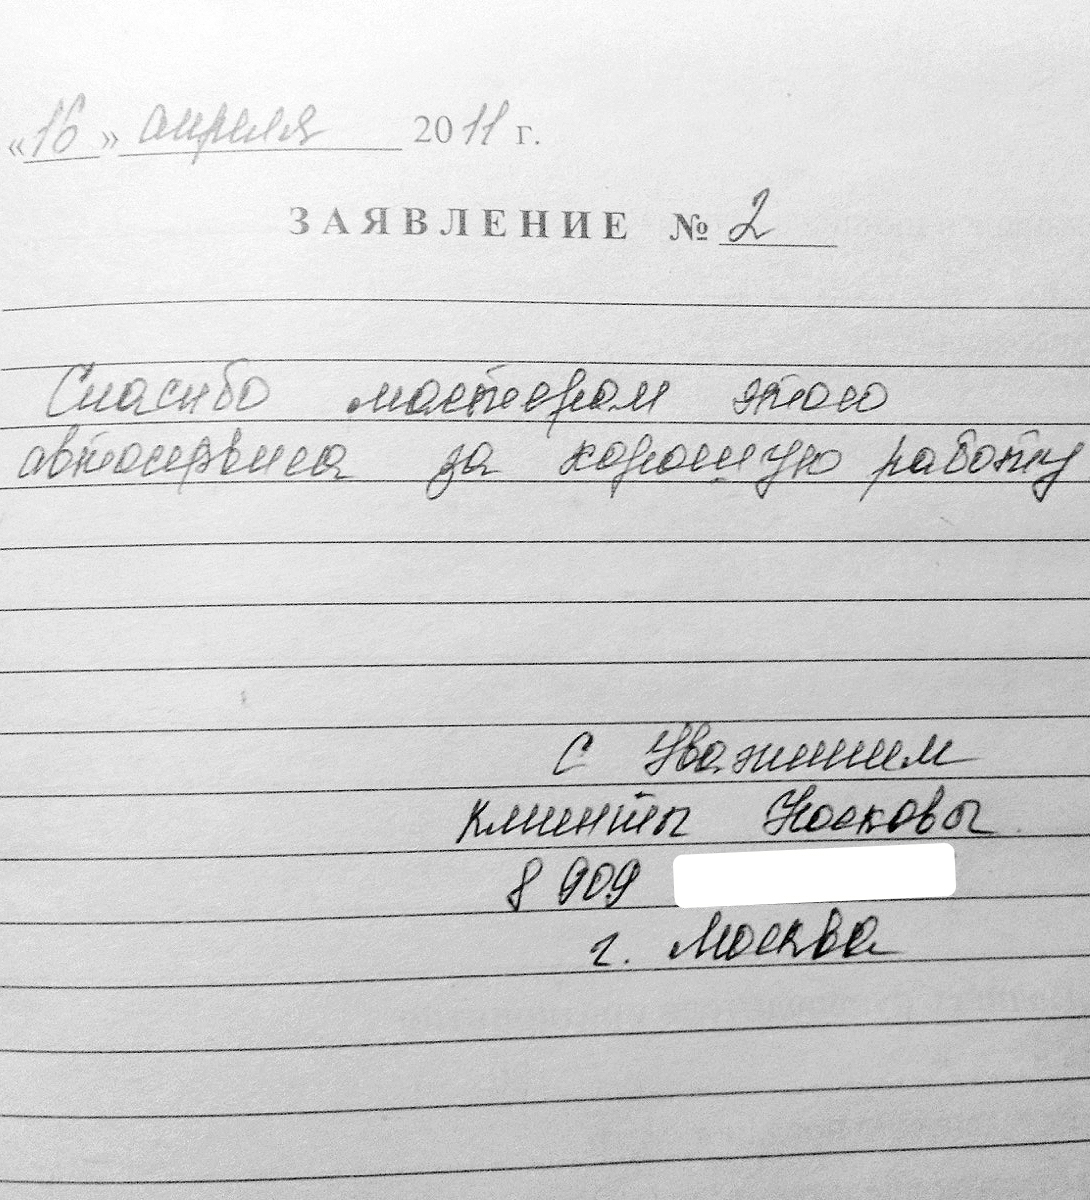 «16» апреля 2011 г.
ЗАЯВЛЕНИЕ № 2
Спасибо мастерам этого
автосервиса за хорошую работу
С Уважением
Клиенты Носковы
8 909
г. Москва